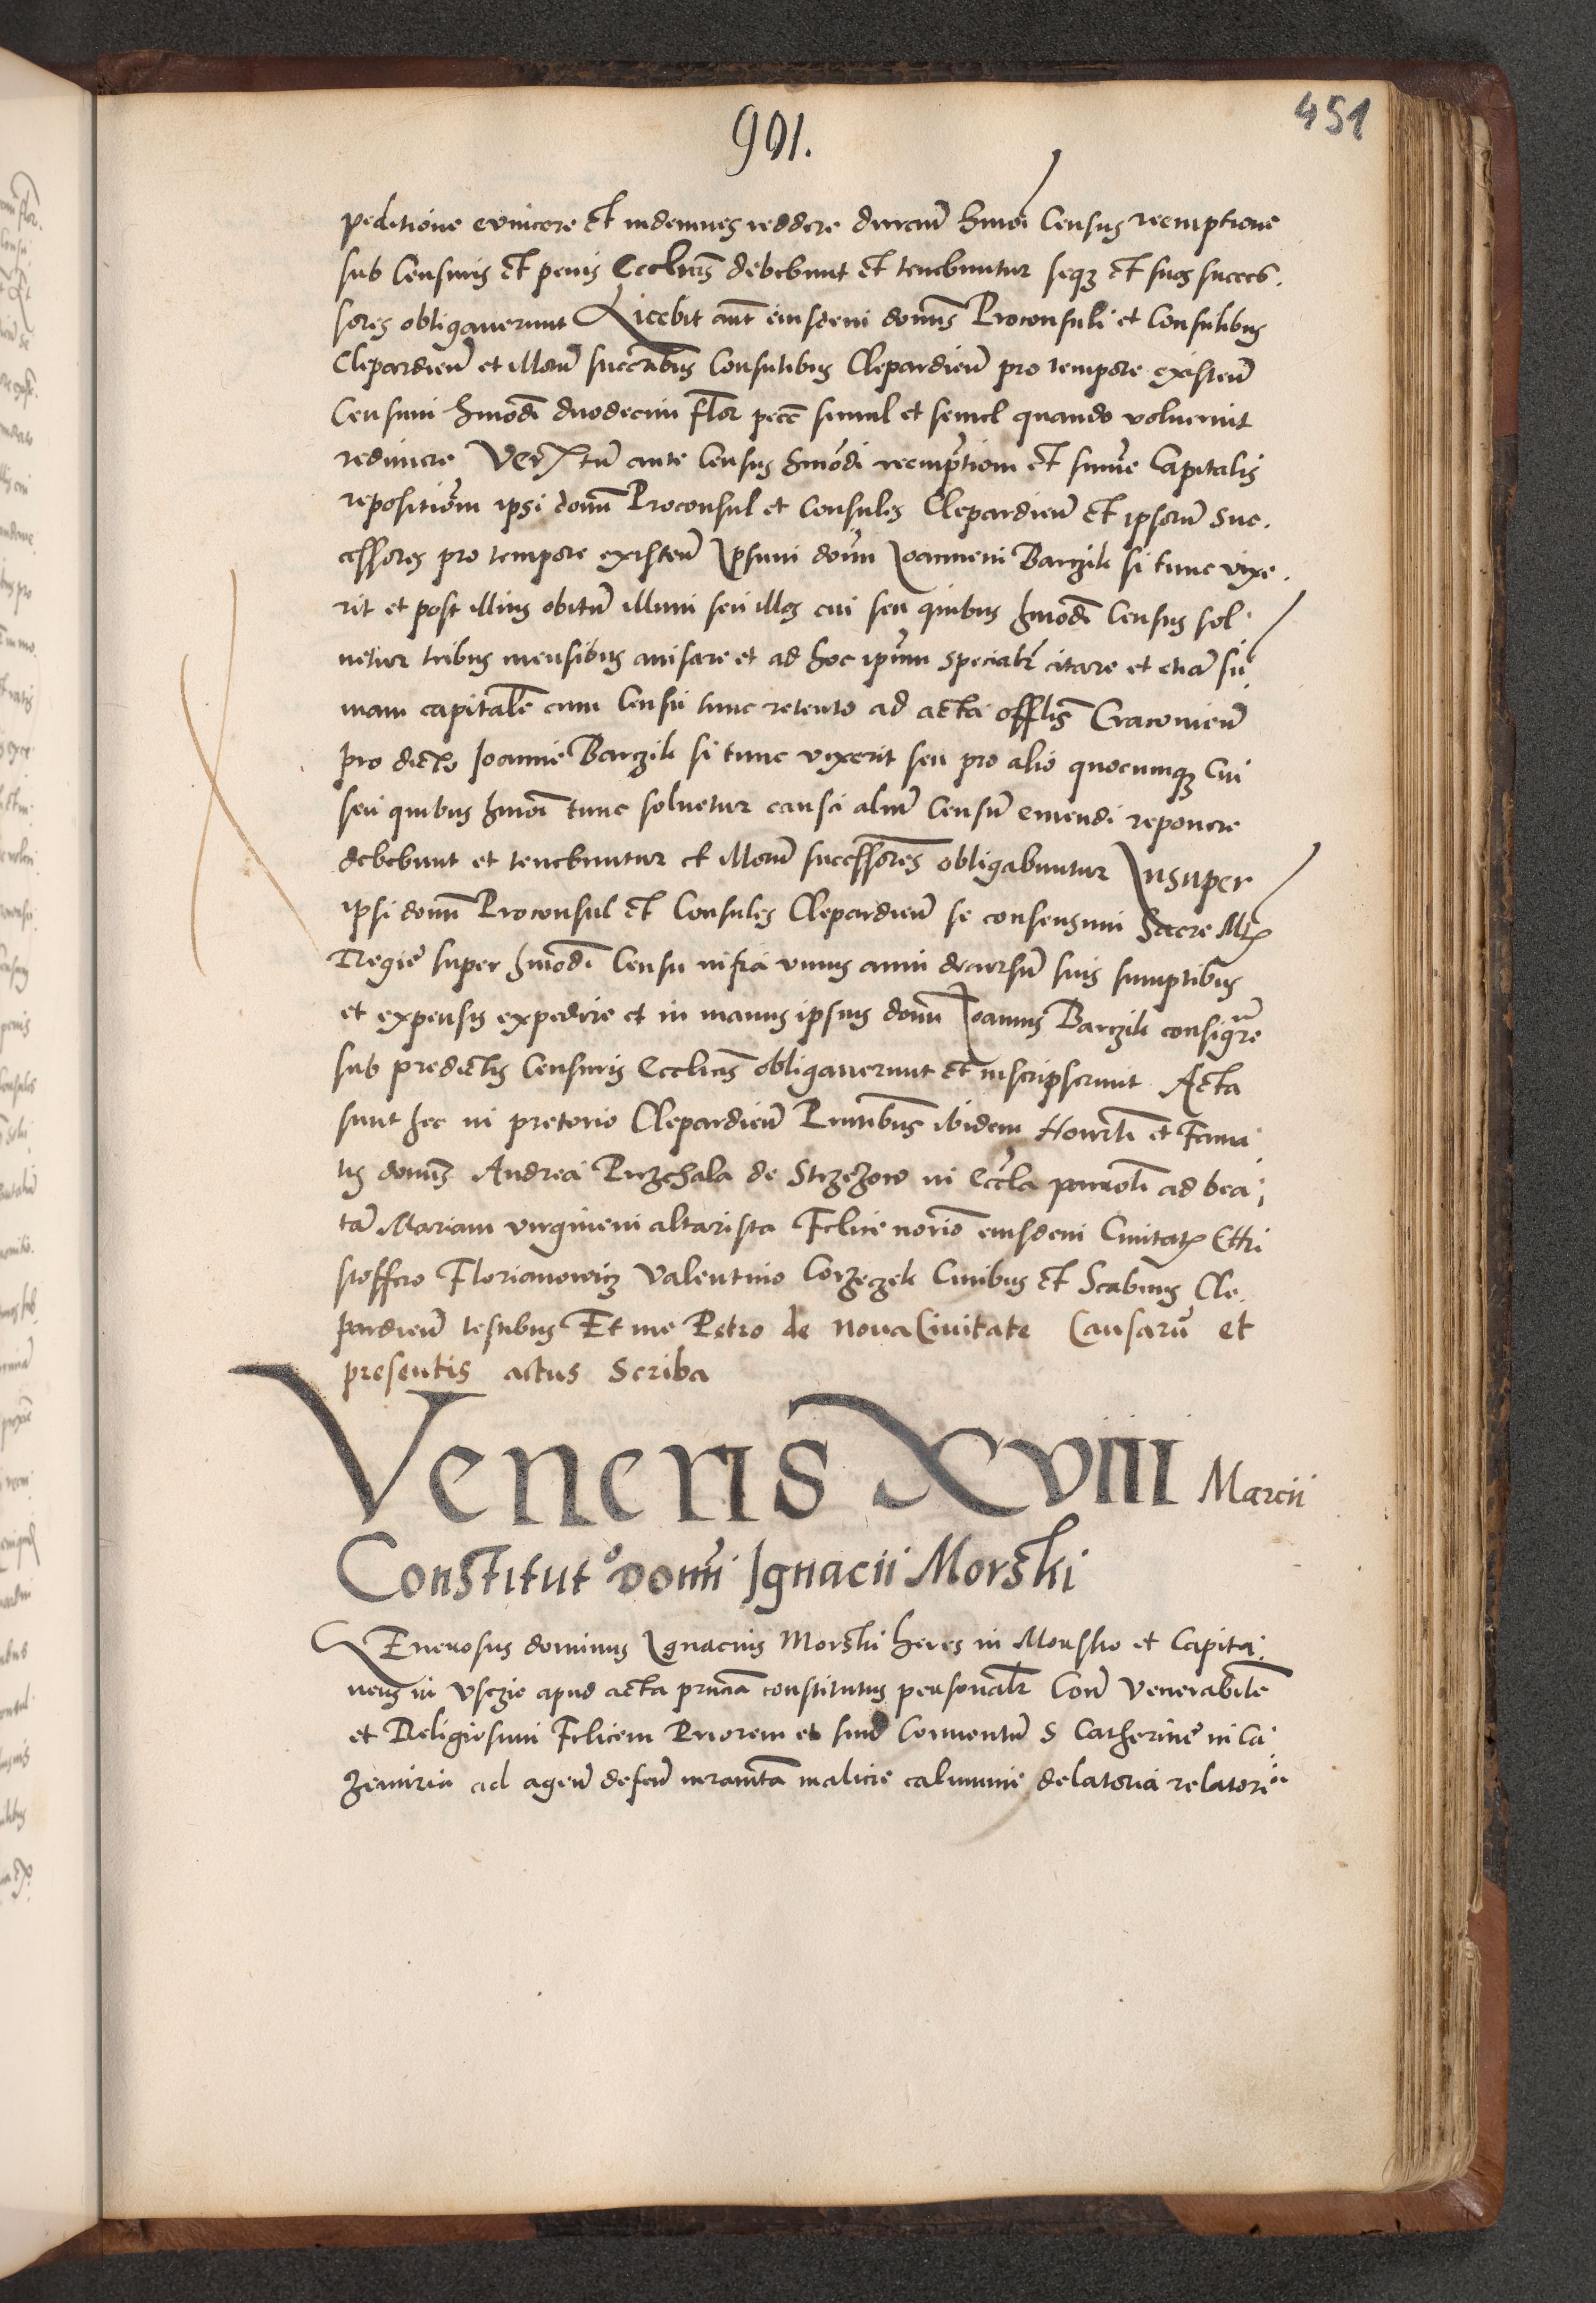 901.
451
peditione evincere et indemnes reddere durañ hmoi Census reemptione
sub Censuris et penis Eccliis debebunt et tenebuntur seq3 et suos succes
sores obligaverunt Licebit aut eiusdem domis Proconsuli et Consulibus
Clepardien et illorum succribus Consulibus Clepardien pro tempore existen
Censum hmodi duodecim flor pecc simul et semel quando voluerint
redimere Ver tn ante Census hmodi reemptiom et sume Capitalis
repositiom ipsi domi Proconsul et Consules Clepardien et ipsorum Suc
cessores pro tempore existen Ipsum domi Joannem Barzik si tunc vixe
rit et post illius obitum illum seu illos cui seu quibus hmodi Census sol
uetur tribus mensibus avisare et ad hoc ipum specialr citare et etia su
mam capitale cum Censu tunc retento ad acta offlis Cracouien
pro dicto Joanne Barzik si tunc vixerit seu pro alio quocumq3 cui
seu quibus hmoi tunc soluetur causa aliu Censu emendi reponere
debebunt et tenebuntur et illorum successores obligabuntur Insuper
ipsi domi Proconsul et Consules Clepardien se consensum Sacre Mtis
Regie super hmodi Censu infra unius anni decursum suis sumptibus
et expensis expedire et in manus ipsius domi Joannis Barzik consigre
sub predictis Censuris Eccliis obligaverunt et inscripserunt Acta
sunt hec in pretorio Clepardien Pntibus ibidem Honorli et Fama
tis domis Andrea Przchala de Strzezow in Eccla ad bea
ta Mariam virginem altarista Felice norio eiusdem Ciuitat Chri
stoffero Florianowicz Valentino Corzezek Ciuibus et Scabinis Cle
pardien testibus Et me Petro de Noua Ciuitate Causaru et
presentis actus Scriba
Veneris XVIII Marcii
Constitutº domi Ignacii Morski
Generosus dominus Ignacius Morski heres in Morsko et Capita
neus in Usczie apud acta pncia constitutus personalr Con Venerabile
et Religiosum Felicem Priorem et sind Conuentum S Catherine in Ca
zemiria ad agen defen iurantā malicie calumnie delatoria relatore